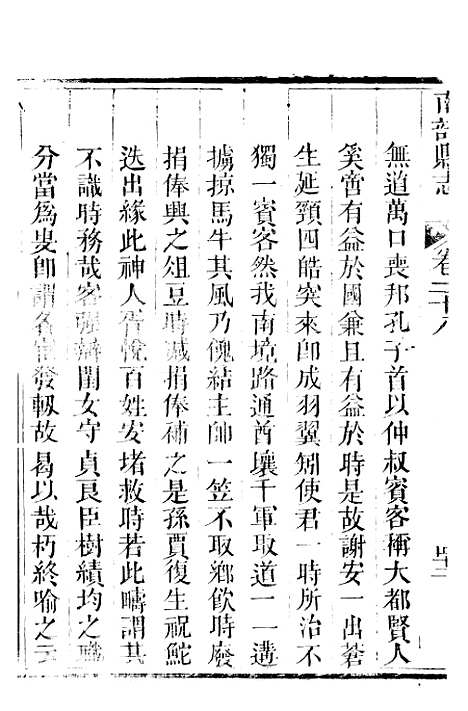 南部縣志 卷二十八
無道萬口喪邦孔子首以仲叔賓客稱大都賢人
奚啻有益於國兼且有益於時是故謝安一出蒼
生延頸四皓突來即成羽翼矧使君一時所治不
獨一賓客然我南境路通酋壤千軍取道一一遘
擄掠馬牛其風乃傀結主帥一笠不取鄉飲時廢
捐俸興之俎豆時減捐俸補之是孫賈復生祝鮀
迭出緣此神人胥悅百姓安堵救時若此疇謂其
不識時務哉客強辯閨女守貞良臣樹績均之職
分當為叟即謂各官發軔故曷以哉朽終喻之云